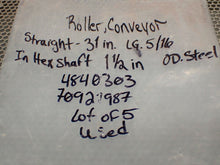 Roller, Conveyor
Straight - 31 in. LG. 5/16
In Hex Shaft 1 1/2 in OD. Steel
4840303
7092-987
Lot of 5
used